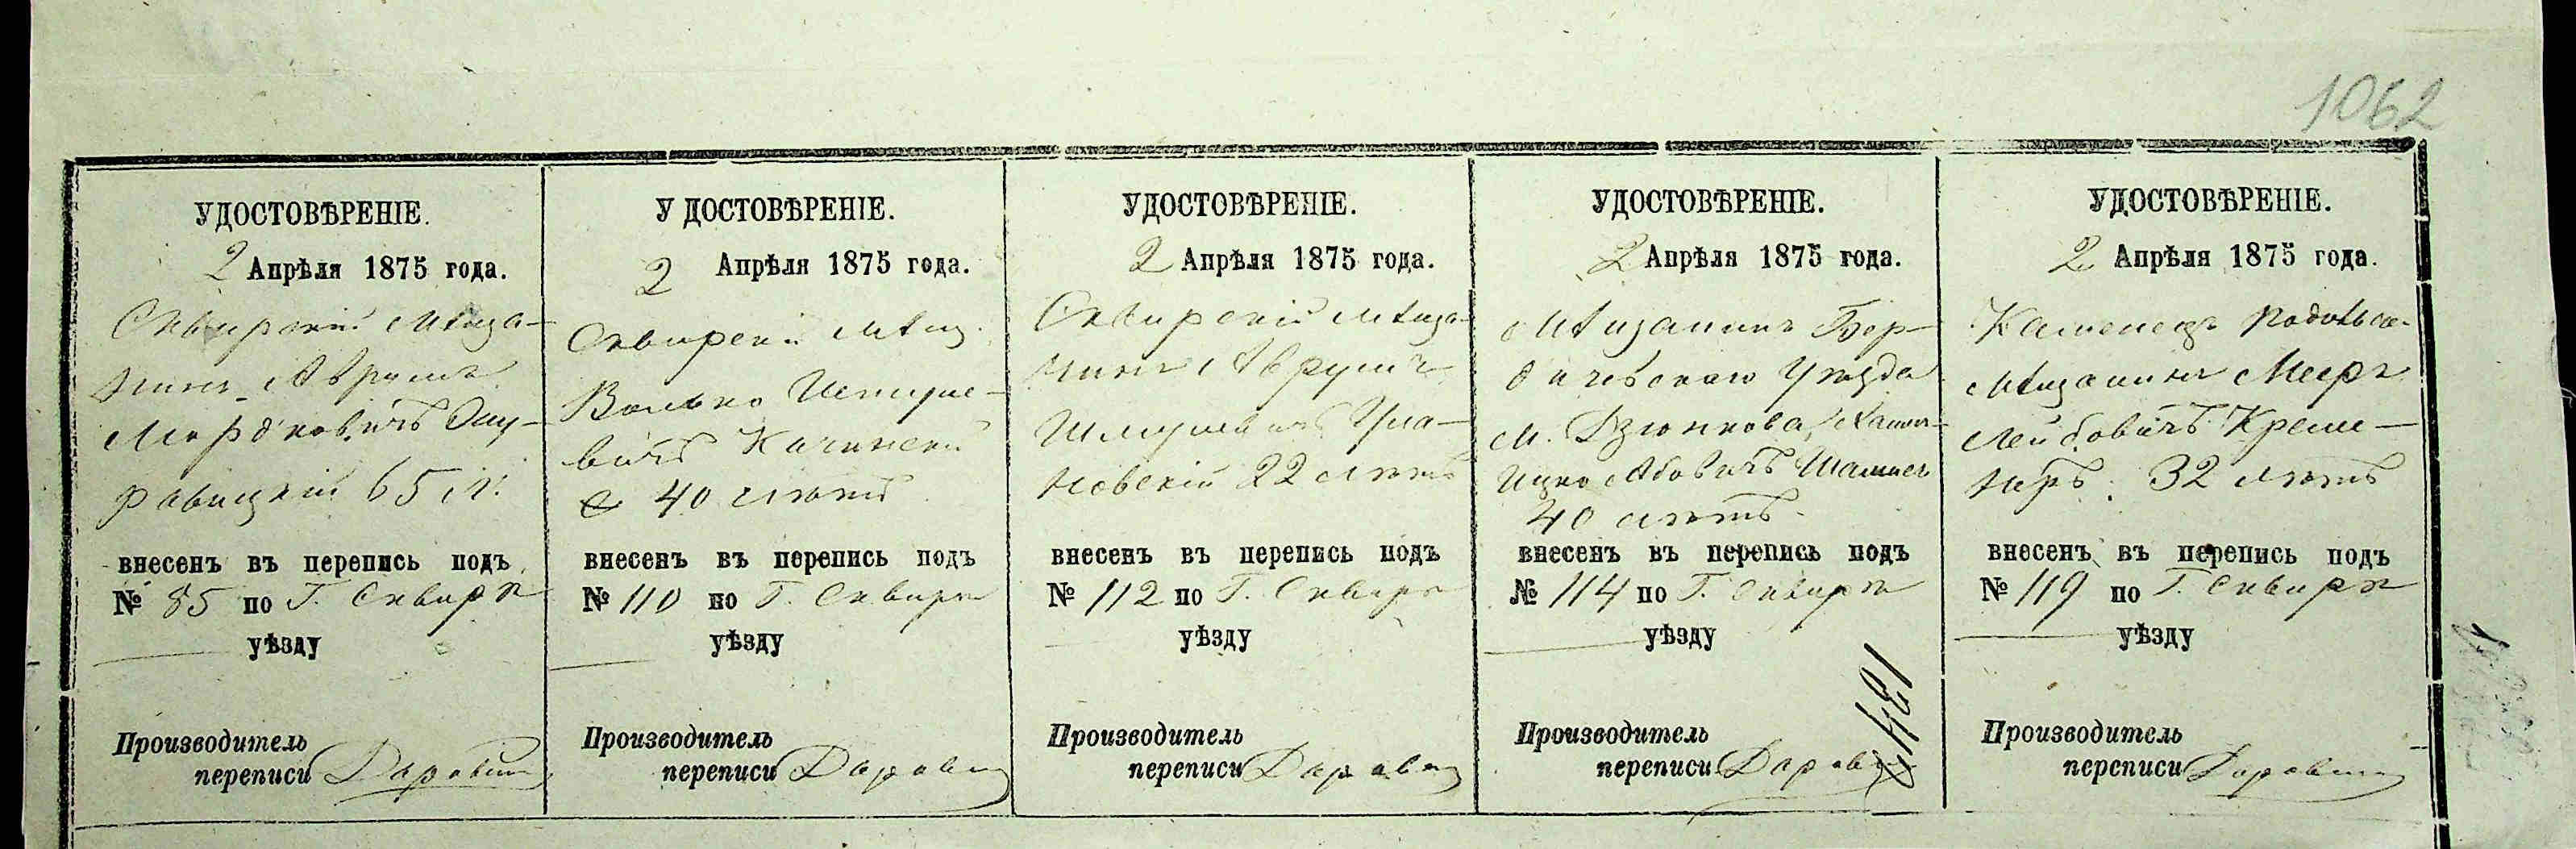 1062
УДОСТОВѢРЕНІЕ.
2 Апрѣля 1875 года.
Сквирскій мѣща-
нинъ Аврумъ
Мордковичъ
65 л.
внесенъ въ перепись подъ
№ 85 по Г. Сквирѣ
уѣзду
Производитель
переписи
УДОСТОВѢРЕНІЕ.
2 Апрѣля 1875 года.
Сквирскій мѣщ.
Волько
40 лѣтъ
внесенъ въ перепись подъ
№ 110 по Г. Сквирѣ
уѣзду
Производитель
переписи
УДОСТОВѢРЕНІЕ.
2 Апрѣля 1875 года.
Сквирскій мѣща-
нинъ Аврумъ
Шмулевичъ Ула-
новскій 22 лѣтъ
внесенъ въ перепись подъ
№ 112 по Г. Сквирѣ
уѣзду
Производитель
переписи
УДОСТОВѢРЕНІЕ.
2 Апрѣля 1875 года.
Мѣщанинъ Бер-
дичевскаго Уѣзда
М. Дзюнкова
Ицко Абовичъ
40 лѣтъ.
внесенъ въ перепись подъ
№ 114 по Г. Сквирѣ
уѣзду
Производитель
переписи
УДОСТОВѢРЕНІЕ.
2 Апрѣля 1875 года.
Каменецъ Подольск.
мѣщанинъ Мееръ
Лейбовичъ Креме-
неръ 32 лѣтъ
внесенъ въ перепись подъ
№ 119 по Г. Сквирѣ
уѣзду
Производитель
переписи